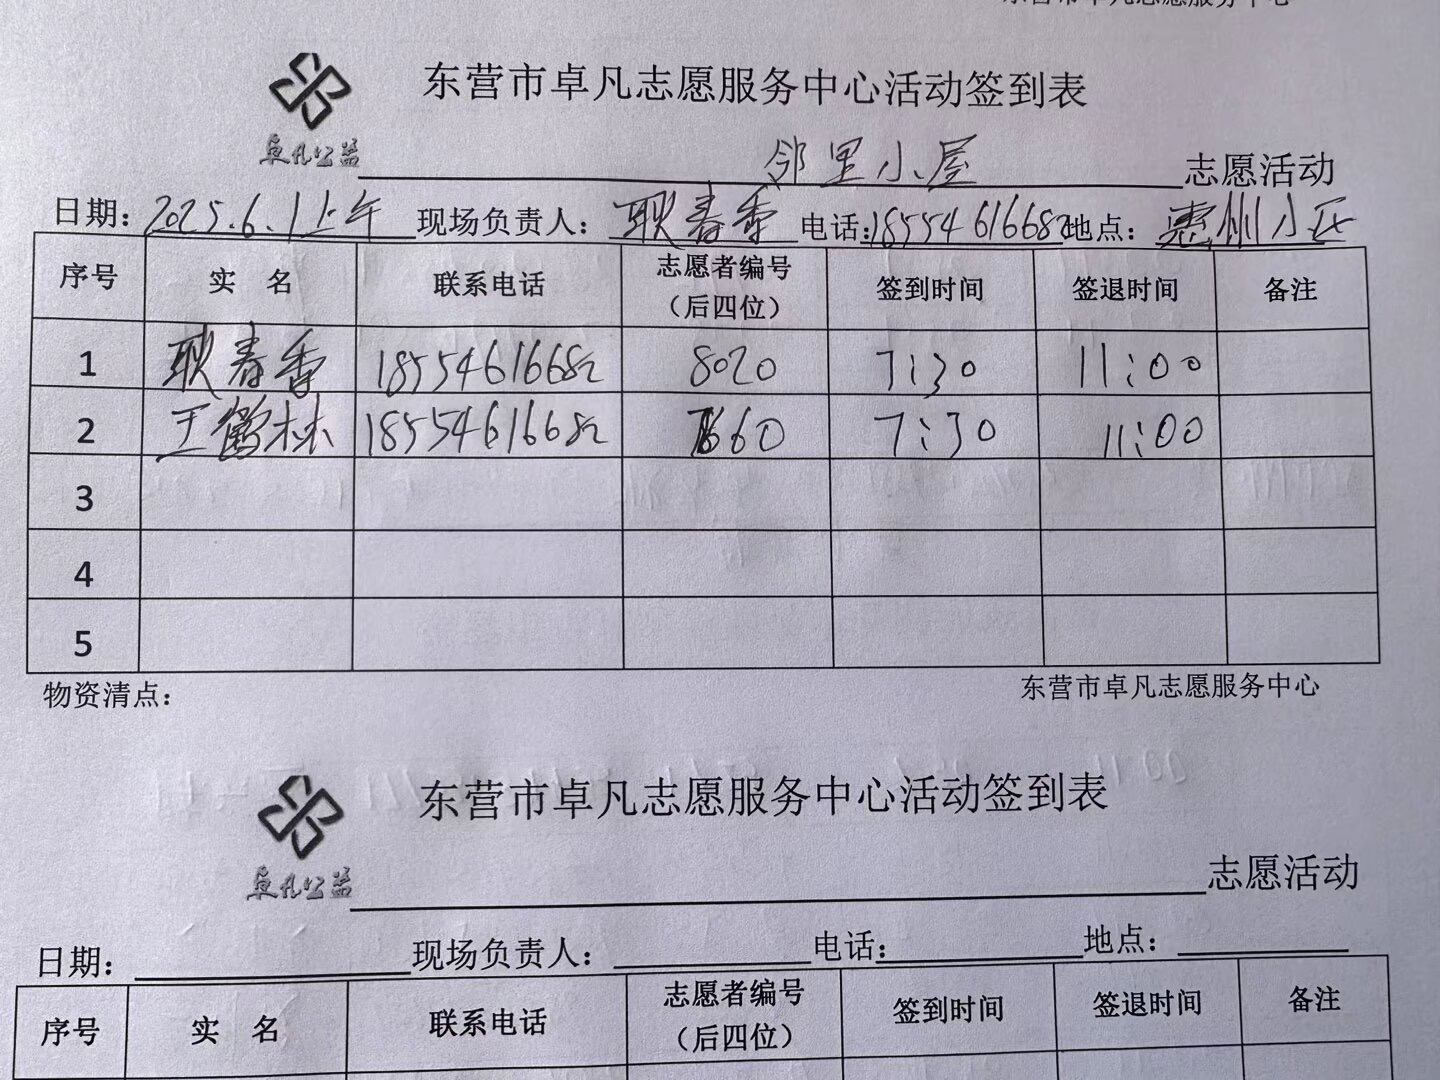 东营市卓凡志愿服务中心
东营市卓凡志愿服务中心活动签到表
卓凡公益
邻里小屋 志愿活动
日期：2025.6.1上午 现场负责人：耿春香 电话：18554616682 地点：惠州小区
序号 实 名 联系电话 志愿者编号（后四位） 签到时间 签退时间 备注
1 耿春香 18554616682 8020 7:30 11:00
2 王鹤林 18554616682 660 7:30 11:00
3
4
5
物资清点： 东营市卓凡志愿服务中心
东营市卓凡志愿服务中心活动签到表
卓凡公益
志愿活动
日期： 现场负责人： 电话： 地点：
序号 实 名 联系电话 志愿者编号（后四位） 签到时间 签退时间 备注